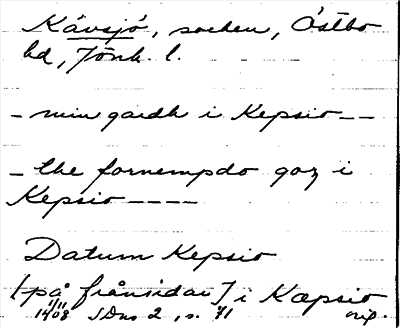 Kävsjö, socken, Östbo
hd, Jönk. l.
– min gardh i Kepsio – –
– the fornempdo goz i
Kepsio – – – –
Datum Kepsio
[på frånsidan] i Kæpsio
1/11 1408 SDns 2, s. 71 orig.